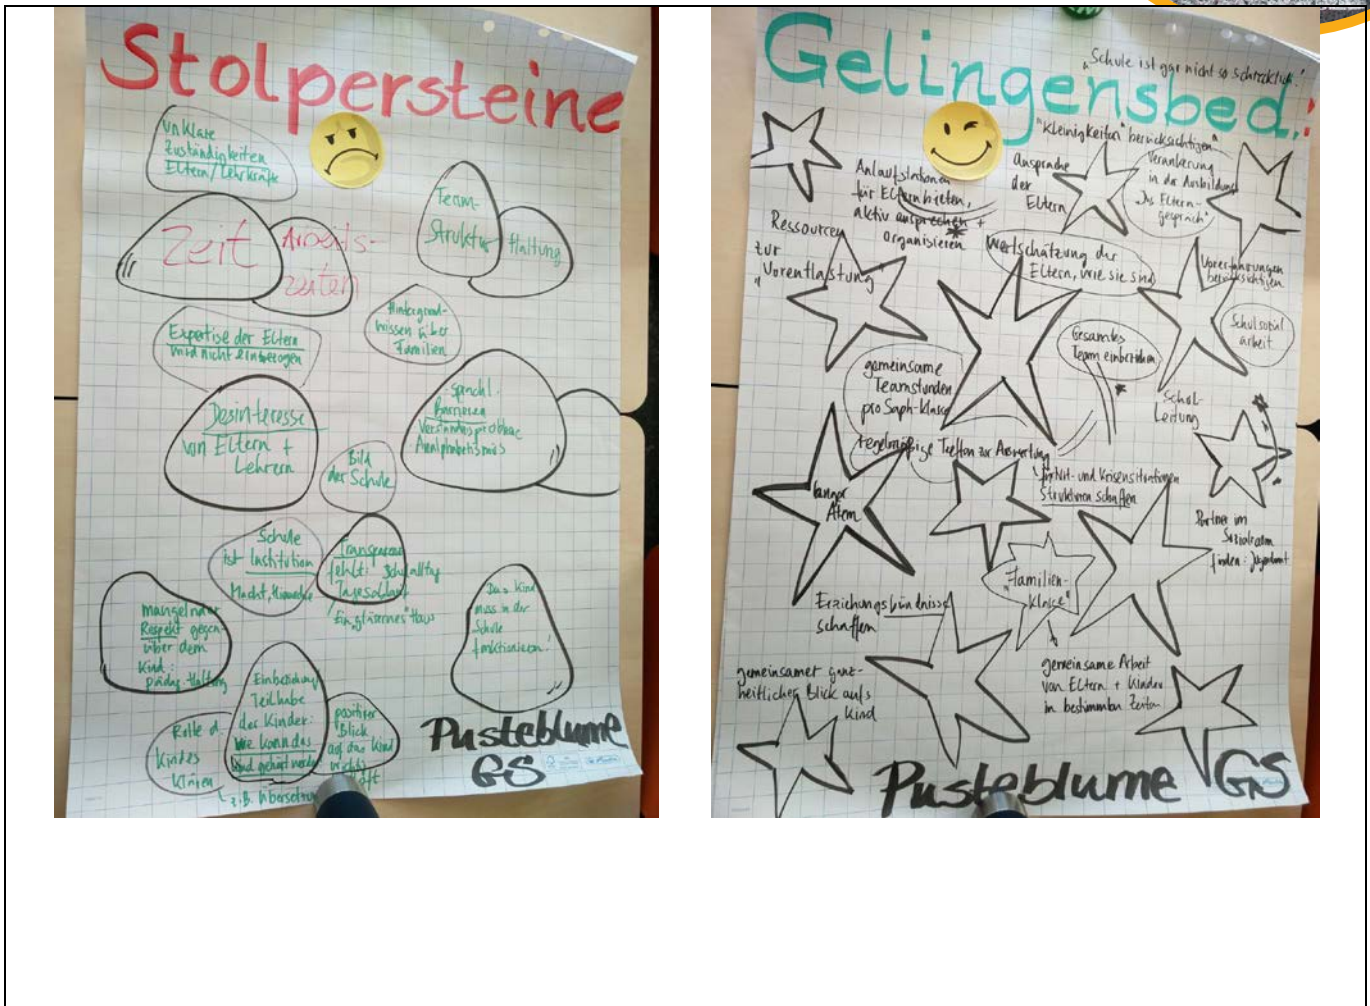 Stolpersteine
unklare
Zuständigkeiten
Eltern/Lehrkräfte
Zeit
Arbeits-
zeiten
Team-
Struktur
Haltung
Hintergrund-
wissen über
Familien
Expertise der Eltern
wird nicht einbezogen
Desinteresse
von Eltern +
Lehrern
sprachl.
Barrieren
Verständnisprobleme
Analphabetismus
Bild
der Schule
Schule
ist Institution
Macht, Hierarchie
Transparenz
fehlt: Schulalltag
Tagesablauf
Ein "gläsernes" Haus
mangelnder
Respekt gegen-
über dem
Kind:
pädag. Haltung
Das Kind
muss in der
Schule
funktionieren!
Rolle d.
Kindes
klären
Einbeziehung
Teilhabe
der Kinder:
Wie kann das
Kind gehört werden
z.B. Übersetzung
positiver
Blick
auf das Kind
Pusteblume
GS
Gelingensbed.:
"Schule ist gar nicht so schrecklich!"
"Kleinigkeiten" berücksichtigen
Anlaufstationen
für Eltern bieten,
aktiv ansprechen +
organisieren
Ansprache
der
Eltern
Verankerung
in der Ausbildung
"Das Eltern-
gespräch"
Ressourcen
zur
"Vorentlastung"
Wertschätzung der
Eltern, wie sie sind
Vorerfahrungen
berücksichtigen
Schulsozial
arbeit
Gesamtes
Team einbeziehen
gemeinsame
Teamstunden
pro Saph-Klasse
Schul-
Leitung
regelmäßige Treffen zur Auswertung
für Not- und Krisensituationen
Strukturen schaffen
langer
Atem
Partner im
Sozialraum
finden: Jugendamt
"Familien-
klasse"
Erziehungsbündnisse
schaffen
gemeinsamer ganz-
heitlicher Blick aufs
Kind
gemeinsame Arbeit
von Eltern + Kinder
in bestimmten Zeiten
Pusteblume GS